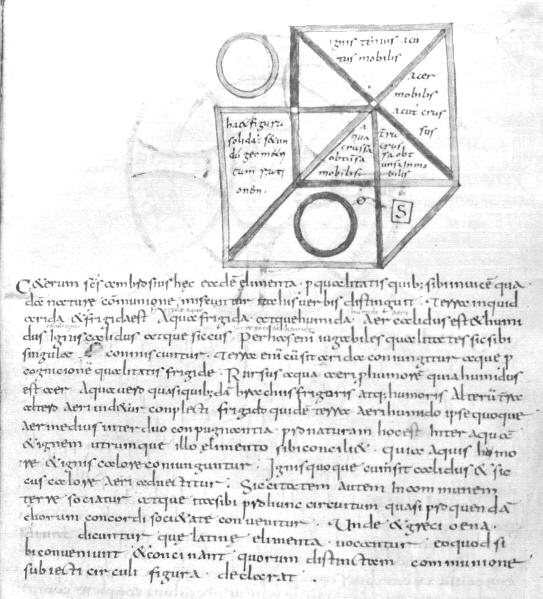 ignis tenuis acu
tus mobilis
acer
mobilis
acut crus
sus
haec figura
solida secun
cam rati
onem
a
qua
crussa
obtunsa
mobilis
crus
sa obt
unsa inmo
bilis
S
Ceterum sci ambrosius hec eadē elimenta · p qualitatis quib; sibi inuicē qua
dā nature cōmunione miscuntur ita his uerbis distinguit · Terra inquid
arida & frigida est Aqua frigida atque humida · Aer calidus est & humi
dus Ignis calidus atque siccus · Per has enī iugabiles qualitates sic sibi
singula commiscuntur · Terra enī cū sit arida coniungitur aque p
cognicione qualitatis frigide · Rursus aqua aeri p humorē quia humidus
est aer · Aqua uero quasi quib;dā brachiis frigoris atq; humoris Alterū terrā
altero aeri uidetur conplecti frigido quidē terrae aeri humido ipse quoque
aer medius inter duo conpugnantia p naturam hoc est inter aquā
& ignem utrumque illo elimento sibi conciliat · quia aquis humo
re & ignis calore coniunguntur · Ignis quoque cum sit calidus & sic
cus calore aeri aduectitur · Siccitatem autem in communem
terre sociatur atque ita sibi p hunc circuitum quasi p quendā
chorum concordi societate conueniunt · Unde & greci
dicuntur que latine elimenta uocantur · eo quod si
bi conueniunt & concinant quorum distinctam communione
subiecti circuli figura · declarat ·